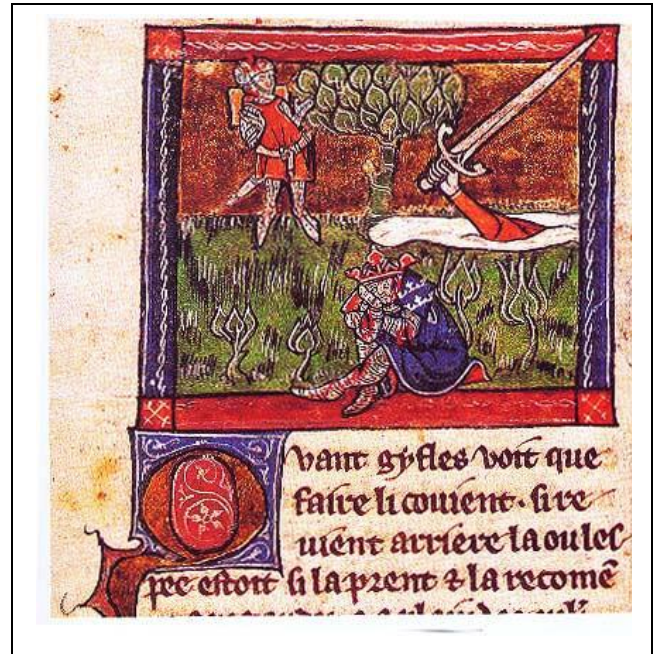 Qvant gyfles voit que
faire li couient. si re
uient arriere la ou les
pee estoit si la prent ⁊ la recomē